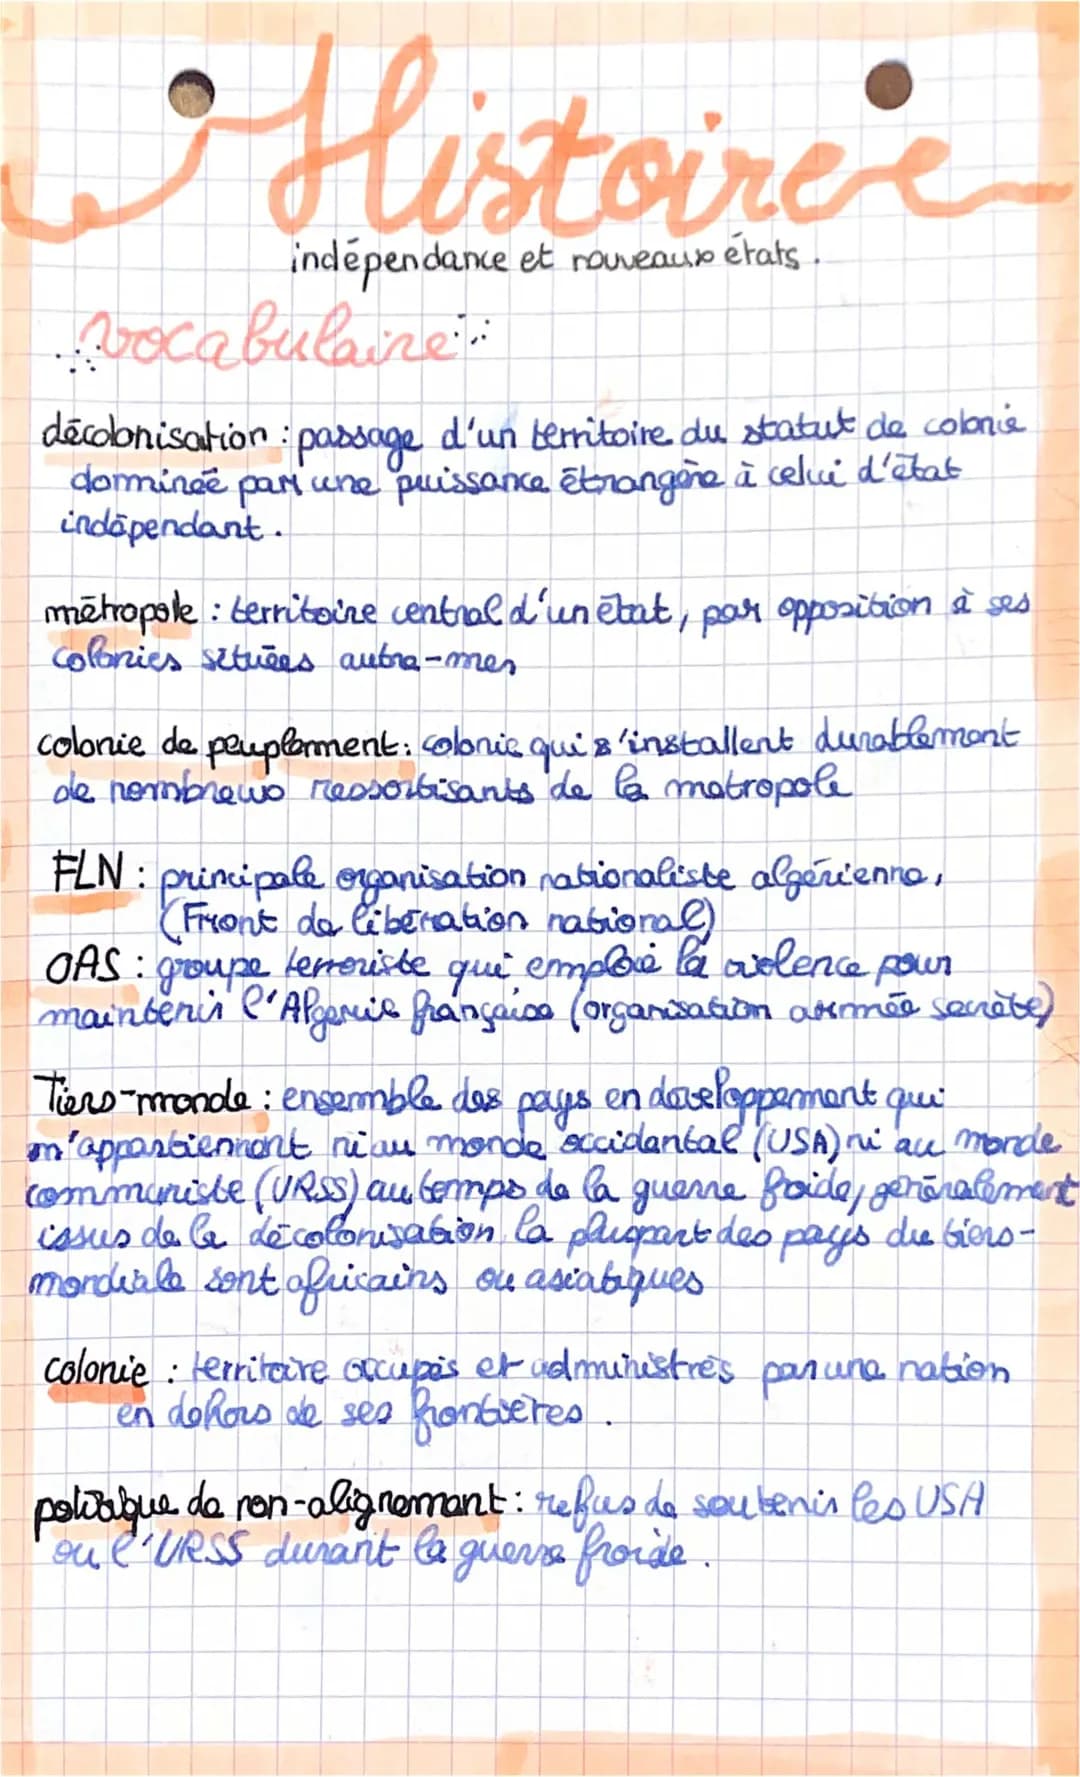 Histoire
indépendance et nouveaux états.
vocabulaire
décolonisation : passage d'un territoire du statut de colonie
dominée par une puissance étrangère à celui d'état
indépendant.
métropole : territoire central d'un état, par opposition à ses
colonies situées outre-mer
colonie de peuplement : colonie qui s'installent durablement
de nombreux ressortisants de la metropole
FLN : principale organisation nationaliste algérienne,
(Front de libération national)
OAS : groupe terroriste qui emploie la violence pour
maintenir l'Algerie française (organisation armée secrète)
Tiers-monde : ensemble des pays en developpement qui
n'appartiennent ni au monde occidental (USA) ni au monde
communiste (URSS) au temps de la guerre froide, généralement
issus de la décolonisation la plupart des pays du tiers-
mondiale sont africains ou asiatiques
colonie : territoire occupés et administrés par une nation
en dehors de ses frontières.
politique de non-alignement : refus de soutenir les USA
ou l'URSS durant la guerre froide.